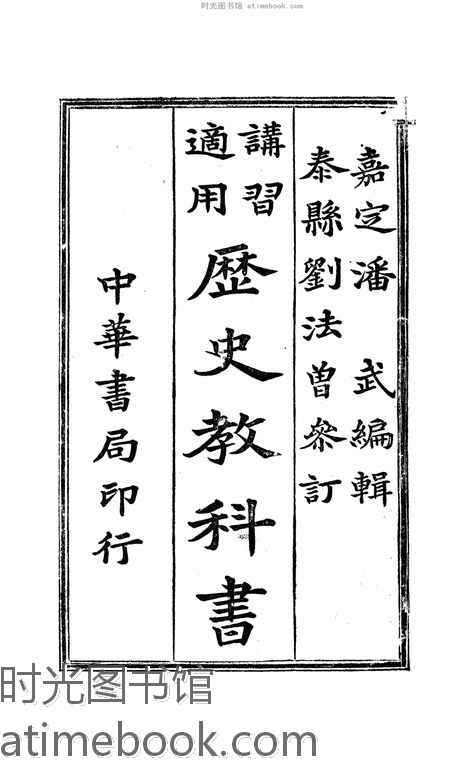 时光图书馆 atimebook.com
嘉定潘 武編輯
泰縣劉法曾參訂
講習適用
歷史教科書
中華書局印行
时光图书馆
atimebook.com